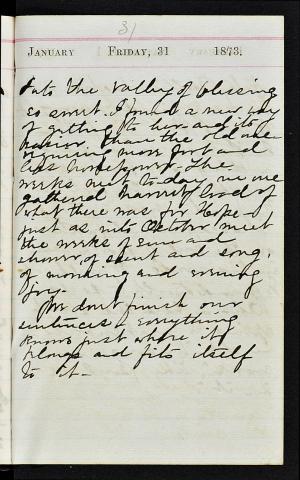 31
JANUARY FRIDAY, 31 1873.
Into the valley of blessing
so sweet. I found a new way
of getting to her and it is
than the old one
requiring more foot and
less horse power. The
weeks meet to-day, we are
gathered
what there was for Hope -
just as into October meet
the weeks of June and
of scent and song,
of morning and evening
joy.
We don't finish our
sentences, everything
knows just where it
belongs and fits itself
to it -